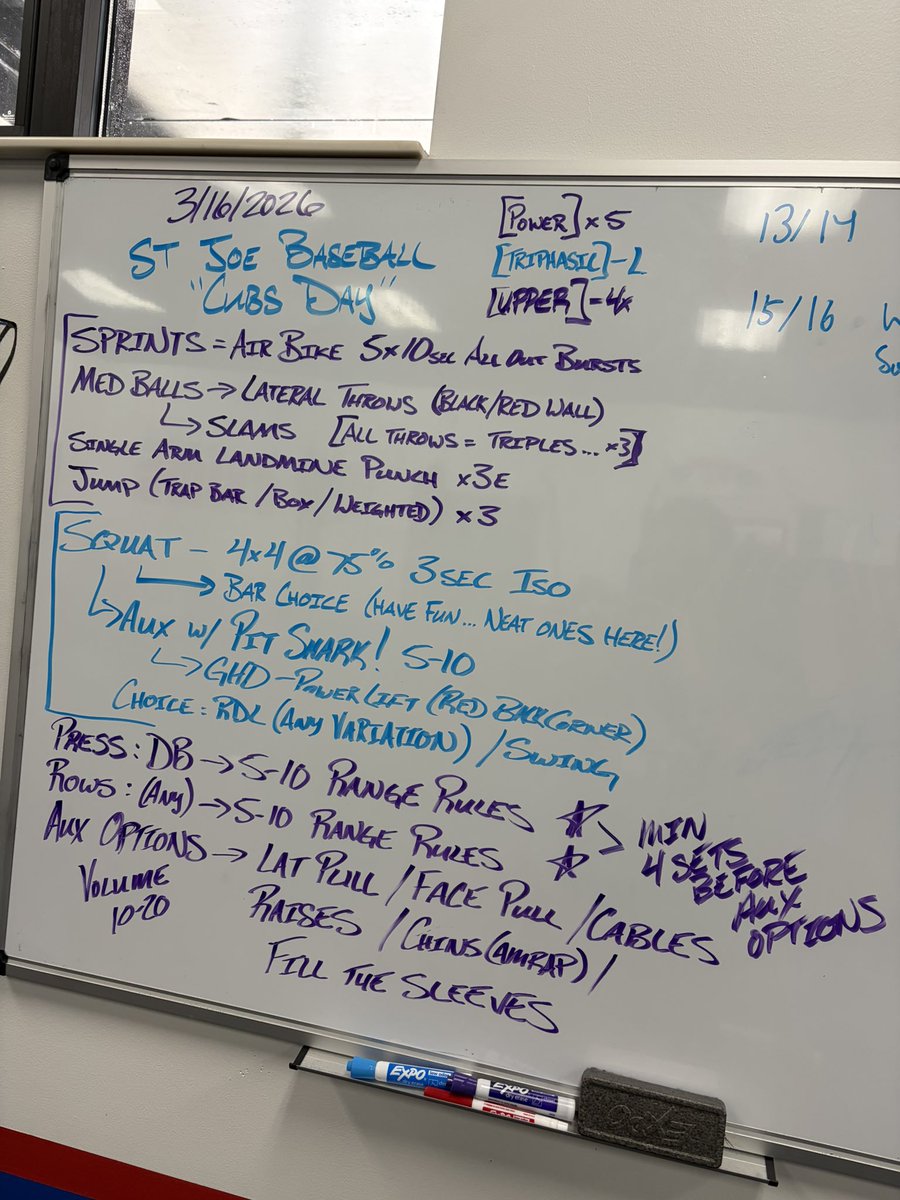 3/16/2026
ST JOE BASEBALL
"CUBS DAY"
[POWER] x 5
[TRIPHASIC] - L
[UPPER] = 4x
13/14
15/16
SPRINTS = AIR BIKE 5x10 SEC ALL OUT BURSTS
MED BALLS → LATERAL THROWS (BLACK/RED WALL)
↳ SLAMS [ALL THROWS = TRIPLES... x3]
SINGLE ARM LANDMINE PUNCH x3E
JUMP (TRAP BAR / BOX / WEIGHTED) x 3
SQUAT - 4x4 @ 75% 3 SEC ISO
→ BAR CHOICE (HAVE FUN... NEAT ONES HERE!)
↳ AUX w/ PIT SHARK! 5-10
↳ GHD - POWER LIFT (RED BACK CORNER)
CHOICE: RDL (ANY VARIATION) / SWING
PRESS: DB → 5-10 RANGE RULES ☆
ROWS: (ANY) → 5-10 RANGE RULES ☆
> MIN
4 SETS
BEFORE
AUX
OPTIONS
AUX OPTIONS → LAT PULL / FACE PULL / CABLES
VOLUME
10-20
RAISES / CHINS (AMRAP) /
FILL THE SLEEVES
EXPO
dry erase
EXPO
dry erase
EXPO